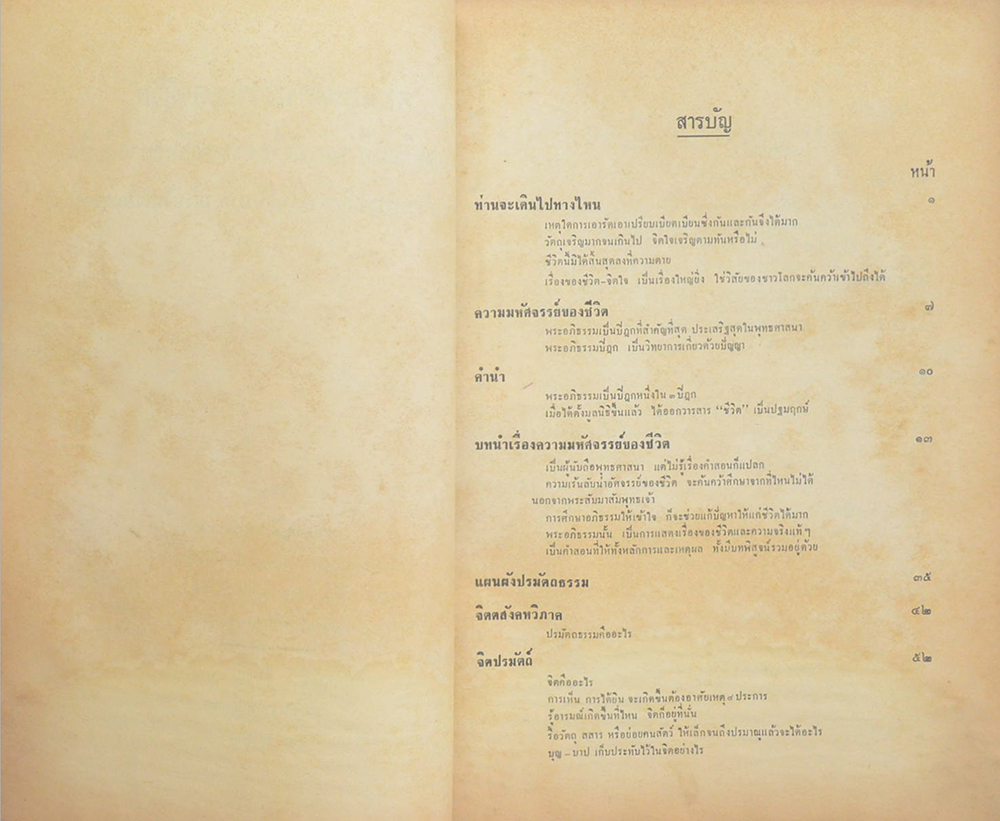 สารบัญ
หน้า
ท่านจะเดินไปทางไหน ๑
เหตุใดการเอารัดเอาเปรียบเบียดเบียนซึ่งกันและกันจึงได้มาก
วัตถุเจริญมากจนเกินไป จิตใจเจริญตามทันหรือไม่
ชีวิตนี้มิได้สิ้นสุดลงที่ความตาย
เรื่องของชีวิต-จิตใจ เป็นเรื่องใหญ่ยิ่ง ใช่วิสัยของชาวโลกจะค้นคว้าเข้าไปถึงได้
ความมหัศจรรย์ของชีวิต ๗
พระอภิธรรมเป็นปิฎกที่สำคัญที่สุด ประเสริฐสุดในพุทธศาสนา
พระอภิธรรมปิฎก เป็นวิทยาการเกี่ยวด้วยปัญญา
คำนำ ๑๐
พระอภิธรรมเป็นปิฎกหนึ่งใน ๓ ปิฎก
เมื่อได้ตั้งมูลนิธิขึ้นแล้ว ได้ออกวารสาร “ชีวิต” เป็นปฐมฤกษ์
บทนำเรื่องความมหัศจรรย์ของชีวิต ๑๓
เป็นผู้นับถือพุทธศาสนา แต่ไม่รู้เรื่องคำสอนก็แปลก
ความเร้นลับน่าอัศจรรย์ของชีวิต จะค้นคว้าศึกษาจากที่ไหนไม่ได้
นอกจากพระสัมมาสัมพุทธเจ้า
การศึกษาอภิธรรมให้เข้าใจ ก็จะช่วยแก้ปัญหาให้แก่ชีวิตได้มาก
พระอภิธรรมนั้น เป็นการแสดงเรื่องของชีวิตและความจริงแท้ๆ
เป็นคำสอนที่ให้ทั้งหลักการและเหตุผล ทั้งมีบทพิสูจน์รวมอยู่ด้วย
แผนผังปรมัตถธรรม ๓๕
จิตตสังคหวิภาค ๔๒
ปรมัตถธรรมคืออะไร
จิตปรมัตถ์ ๕๒
จิตคืออะไร
การเห็น การได้ยิน จะเกิดขึ้นต้องอาศัยเหตุ ๔ ประการ
รู้อารมณ์เกิดขึ้นที่ไหน จิตก็อยู่ที่นั่น
รื้อวัตถุ สสาร หรือย่อยคนสัตว์ ให้เล็กจนถึงปรมาณูแล้วจะได้อะไร
บุญ - บาป เก็บประทับไว้ในจิตอย่างไร